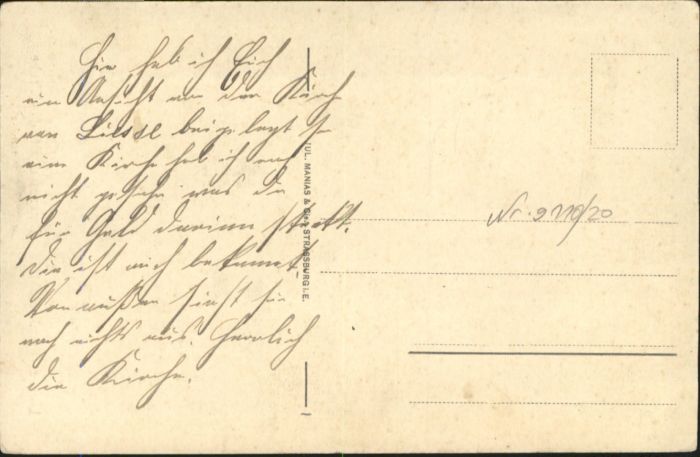 Hier hab ich Euch
ein Ansicht von der Kirch
von Liesse beigelegt so
eine Kirche hab ich noch
nicht gesehn was da
für Geld darinn steckt.
die ist mich bekannt.
Von außen sieht sie
noch nichts aus. Herrlich
die Kirche.
JUL. MANIAS & Cie, STRASSBURG i. E.
Nr. 9210/20